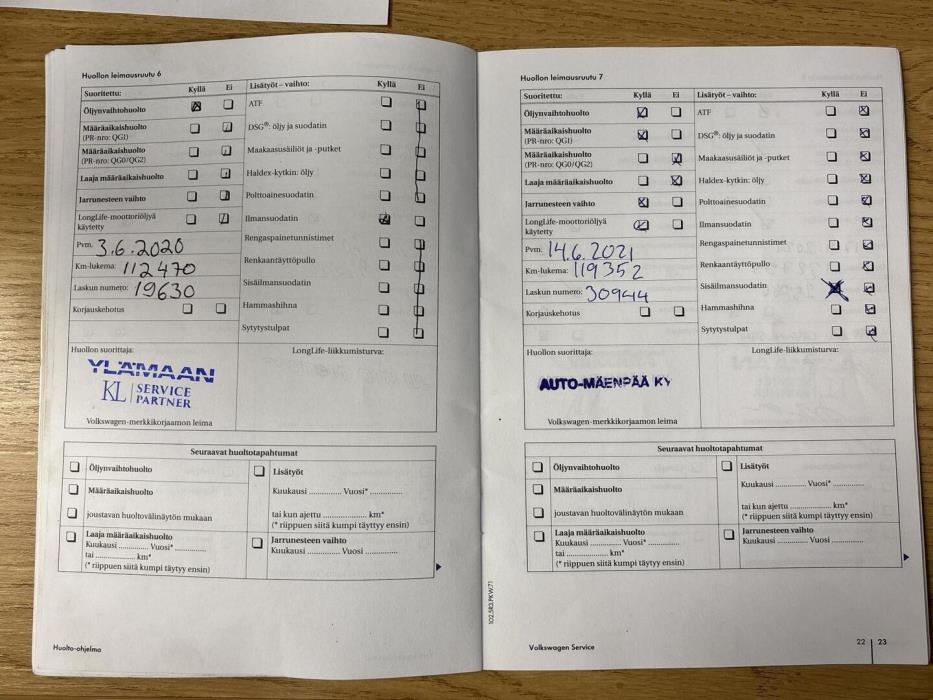 Huollon leimausruutu 6
Suoritettu: Kyllä Ei
Öljynvaihtohuolto
Määräaikaishuolto
(PR-nro: QG1)
Määräaikaishuolto
(PR-nro: QG0/QG2)
Laaja määräaikaishuolto
Jarrunesteen vaihto
LongLife-moottoriöljyä
käytetty
Pvm. 3.6.2020
Km-lukema: 112470
Laskun numero: 19630
Korjauskehotus
Lisätyöt – vaihto: Kyllä Ei
ATF
DSG®: öljy ja suodatin
Maakaasusäiliöt ja -putket
Haldex-kytkin: öljy
Polttoainesuodatin
Ilmansuodatin
Rengaspainetunnistimet
Renkaantäyttöpullo
Sisäilmansuodatin
Hammashihna
Sytytystulpat
Huollon suorittaja:
YLÄMAAN
KL SERVICE
PARTNER
Volkswagen-merkkikorjaamon leima
LongLife-liikkumisturva:
Seuraavat huoltotapahtumat
Öljynvaihtohuolto
Määräaikaishuolto
joustavan huoltovälinäytön mukaan
Laaja määräaikaishuolto
Kuukausi ............. Vuosi* .............
tai ................ km*
(* riippuen siitä kumpi täyttyy ensin)
Lisätyöt
Kuukausi ............. Vuosi* .............
tai kun ajettu ................ km*
(* riippuen siitä kumpi täyttyy ensin)
Jarrunesteen vaihto
Kuukausi ............. Vuosi .............
Huolto-ohjelma
Huollon leimausruutu 7
Suoritettu: Kyllä Ei
Öljynvaihtohuolto
Määräaikaishuolto
(PR-nro: QG1)
Määräaikaishuolto
(PR-nro: QG0/QG2)
Laaja määräaikaishuolto
Jarrunesteen vaihto
LongLife-moottoriöljyä
käytetty
Pvm. 14.6.2021
Km-lukema: 119352
Laskun numero: 30944
Korjauskehotus
Lisätyöt – vaihto: Kyllä Ei
ATF
DSG®: öljy ja suodatin
Maakaasusäiliöt ja -putket
Haldex-kytkin: öljy
Polttoainesuodatin
Ilmansuodatin
Rengaspainetunnistimet
Renkaantäyttöpullo
Sisäilmansuodatin
Hammashihna
Sytytystulpat
Huollon suorittaja:
AUTO-MÄENPÄÄ KY
Volkswagen-merkkikorjaamon leima
LongLife-liikkumisturva:
Seuraavat huoltotapahtumat
Öljynvaihtohuolto
Määräaikaishuolto
joustavan huoltovälinäytön mukaan
Laaja määräaikaishuolto
Kuukausi ............. Vuosi* .............
tai ................ km*
(* riippuen siitä kumpi täyttyy ensin)
Lisätyöt
Kuukausi ............. Vuosi* .............
tai kun ajettu ................ km*
(* riippuen siitä kumpi täyttyy ensin)
Jarrunesteen vaihto
Kuukausi ............. Vuosi .............
Volkswagen Service
22 | 23